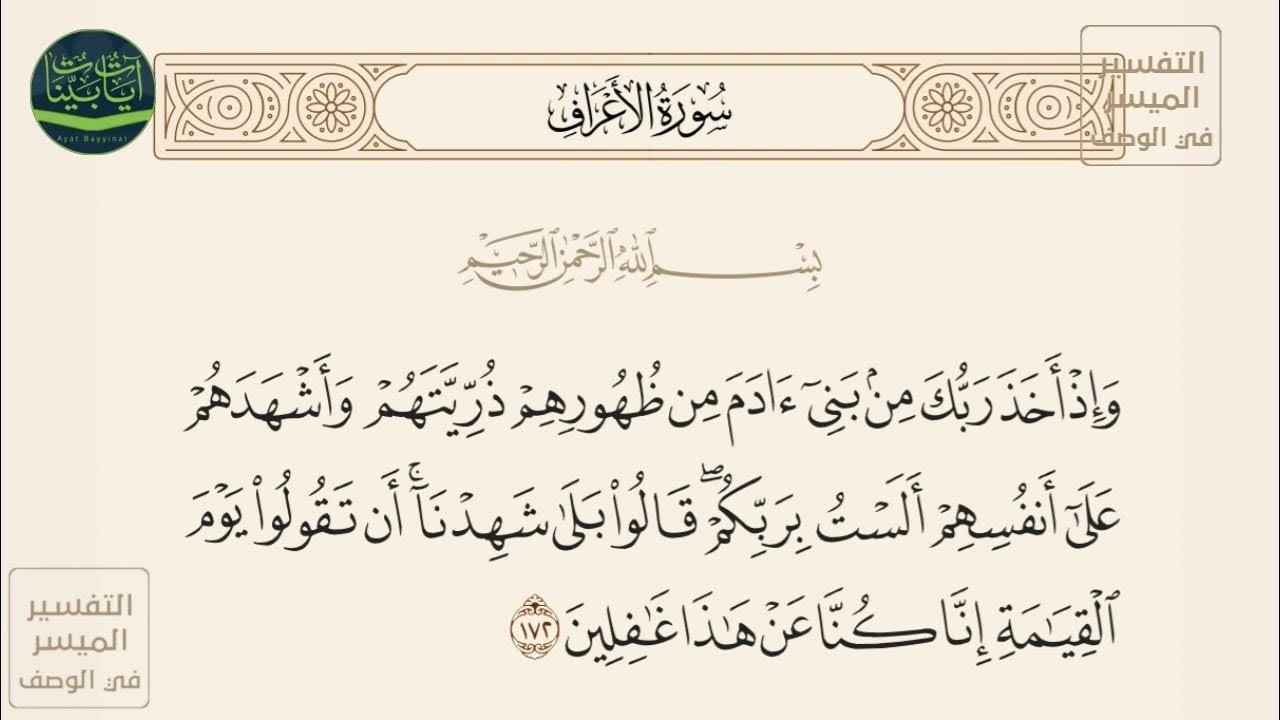 آيات بينات
Ayat Bayyinat
سُورَةُ الأَعْرَافِ
التفسير
الميسر
في الوصف
بِسْمِ ٱللَّهِ ٱلرَّحْمَٰنِ ٱلرَّحِيمِ
وَإِذْ أَخَذَ رَبُّكَ مِنۢ بَنِىٓ ءَادَمَ مِن ظُهُورِهِمْ ذُرِّيَّتَهُمْ وَأَشْهَدَهُمْ
عَلَىٰٓ أَنفُسِهِمْ أَلَسْتُ بِرَبِّكُمْ ۖ قَالُوا۟ بَلَىٰ شَهِدْنَآ ۚ أَن تَقُولُوا۟ يَوْمَ
ٱلْقِيَٰمَةِ إِنَّا كُنَّا عَنْ هَٰذَا غَٰفِلِينَ ١٧٢
التفسير
الميسر
في الوصف